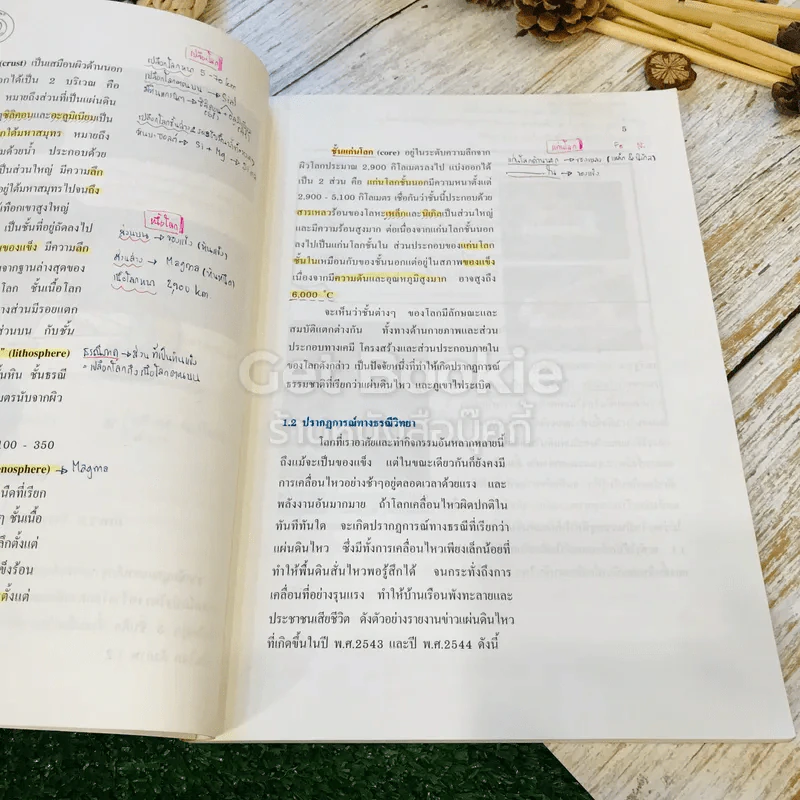 (crust) เป็นเสมือนผิวด้านนอก
อกได้เป็น 2 บริเวณ คือ
หมายถึงส่วนที่เป็นแผ่นดิน
ซิลิคอนและอะลูมิเนียมเป็น
กใต้มหาสมุทร หมายถึง
ด้วยน้ำ ประกอบด้วย
เป็นส่วนใหญ่ มีความลึก
อยู่ใต้มหาสมุทรไปจนถึง
ทือกเขาสูงใหญ่
เป็นชั้นที่อยู่ถัดลงไป
ของแข็ง มีความลึก
จากฐานล่างสุดของ
โลก ชั้นเนื้อโลก
างส่วนมีรอยแตก
ส่วนบน กับชั้น
" (lithosphere)
ชั้นหิน ชั้นธรณี
มตรนับจากผิว
100 - 350
enosphere) → Magma
นืดที่เรียก
ๆ ชั้นเนื้อ
ลึกตั้งแต่
ข็งร้อน
ตั้งแต่
เปลือกโลก
เปลือกโลกหนา 5 - 70 km
เนื้อโลก
ส่วนบน → ของแข็ง (หินแข็ง)
ส่วนล่าง → Magma (หินหนืด)
เนื้อโลกหนา 2,900 km
ธรณีภาค → ส่วนที่เป็นหินแข็ง
5
ชั้นแก่นโลก (core) อยู่ในระดับความลึกจาก
ผิวโลกประมาณ 2,900 กิโลเมตรลงไป แบ่งออกได้
เป็น 2 ส่วน คือ แก่นโลกชั้นนอกมีความหนาตั้งแต่
2,900 - 5,100 กิโลเมตร เชื่อกันว่าชั้นนี้ประกอบด้วย
สารเหลวร้อนของโลหะเหล็กและนิกิลเป็นส่วนใหญ่
และมีความร้อนสูงมาก ต่อเนื่องจากแก่นโลกชั้นนอก
ลงไปเป็นแก่นโลกชั้นใน ส่วนประกอบของแก่นโลก
ชั้นในเหมือนกับของชั้นนอกแต่อยู่ในสภาพของแข็ง
เนื่องจากมีความดันและอุณหภูมิสูงมาก อาจสูงถึง
6,000 °C
จะเห็นว่าชั้นต่างๆ ของโลกมีลักษณะและ
สมบัติแตกต่างกัน ทั้งทางด้านกายภาพและส่วน
ประกอบทางเคมี โครงสร้างและส่วนประกอบภายใน
ของโลกดังกล่าว เป็นปัจจัยหนึ่งที่ทำให้เกิดปรากฏการณ์
ธรรมชาติที่เรียกว่าแผ่นดินไหว และภูเขาไฟระเบิด
แก่นโลก Fe Ni
1.2 ปรากฏการณ์ทางธรณีวิทยา
โลกที่เราอาศัยและทำกิจกรรมอันหลากหลายนี้
ถึงแม้จะเป็นของแข็ง แต่ในขณะเดียวกันก็ยังคงมี
การเคลื่อนไหวอย่างช้าๆอยู่ตลอดเวลาด้วยแรง และ
พลังงานอันมากมาย ถ้าโลกเคลื่อนไหวผิดปกติใน
ทันทีทันใด จะเกิดปรากฏการณ์ทางธรณีที่เรียกว่า
แผ่นดินไหว ซึ่งมีทั้งการเคลื่อนไหวเพียงเล็กน้อยที่
ทำให้พื้นดินสั่นไหวพอรู้สึกได้ จนกระทั่งถึงการ
เคลื่อนที่อย่างรุนแรง ทำให้บ้านเรือนพังทะลายและ
ประชาชนเสียชีวิต ดังตัวอย่างรายงานข่าวแผ่นดินไหว
ที่เกิดขึ้นในปี พ.ศ.2543 และปี พ.ศ.2544 ดังนี้
Get Bookie
ร้านหนังสือบุ๊คกี้